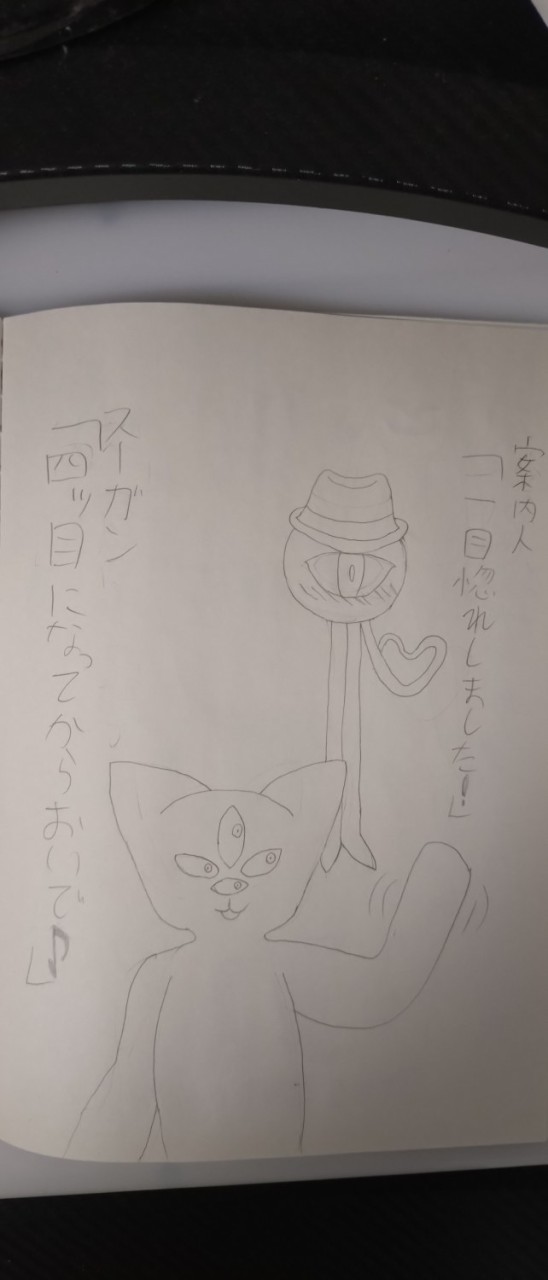 案内人
「一目惚れしました!」
スーガン
「四ッ目になってからおいで♪」